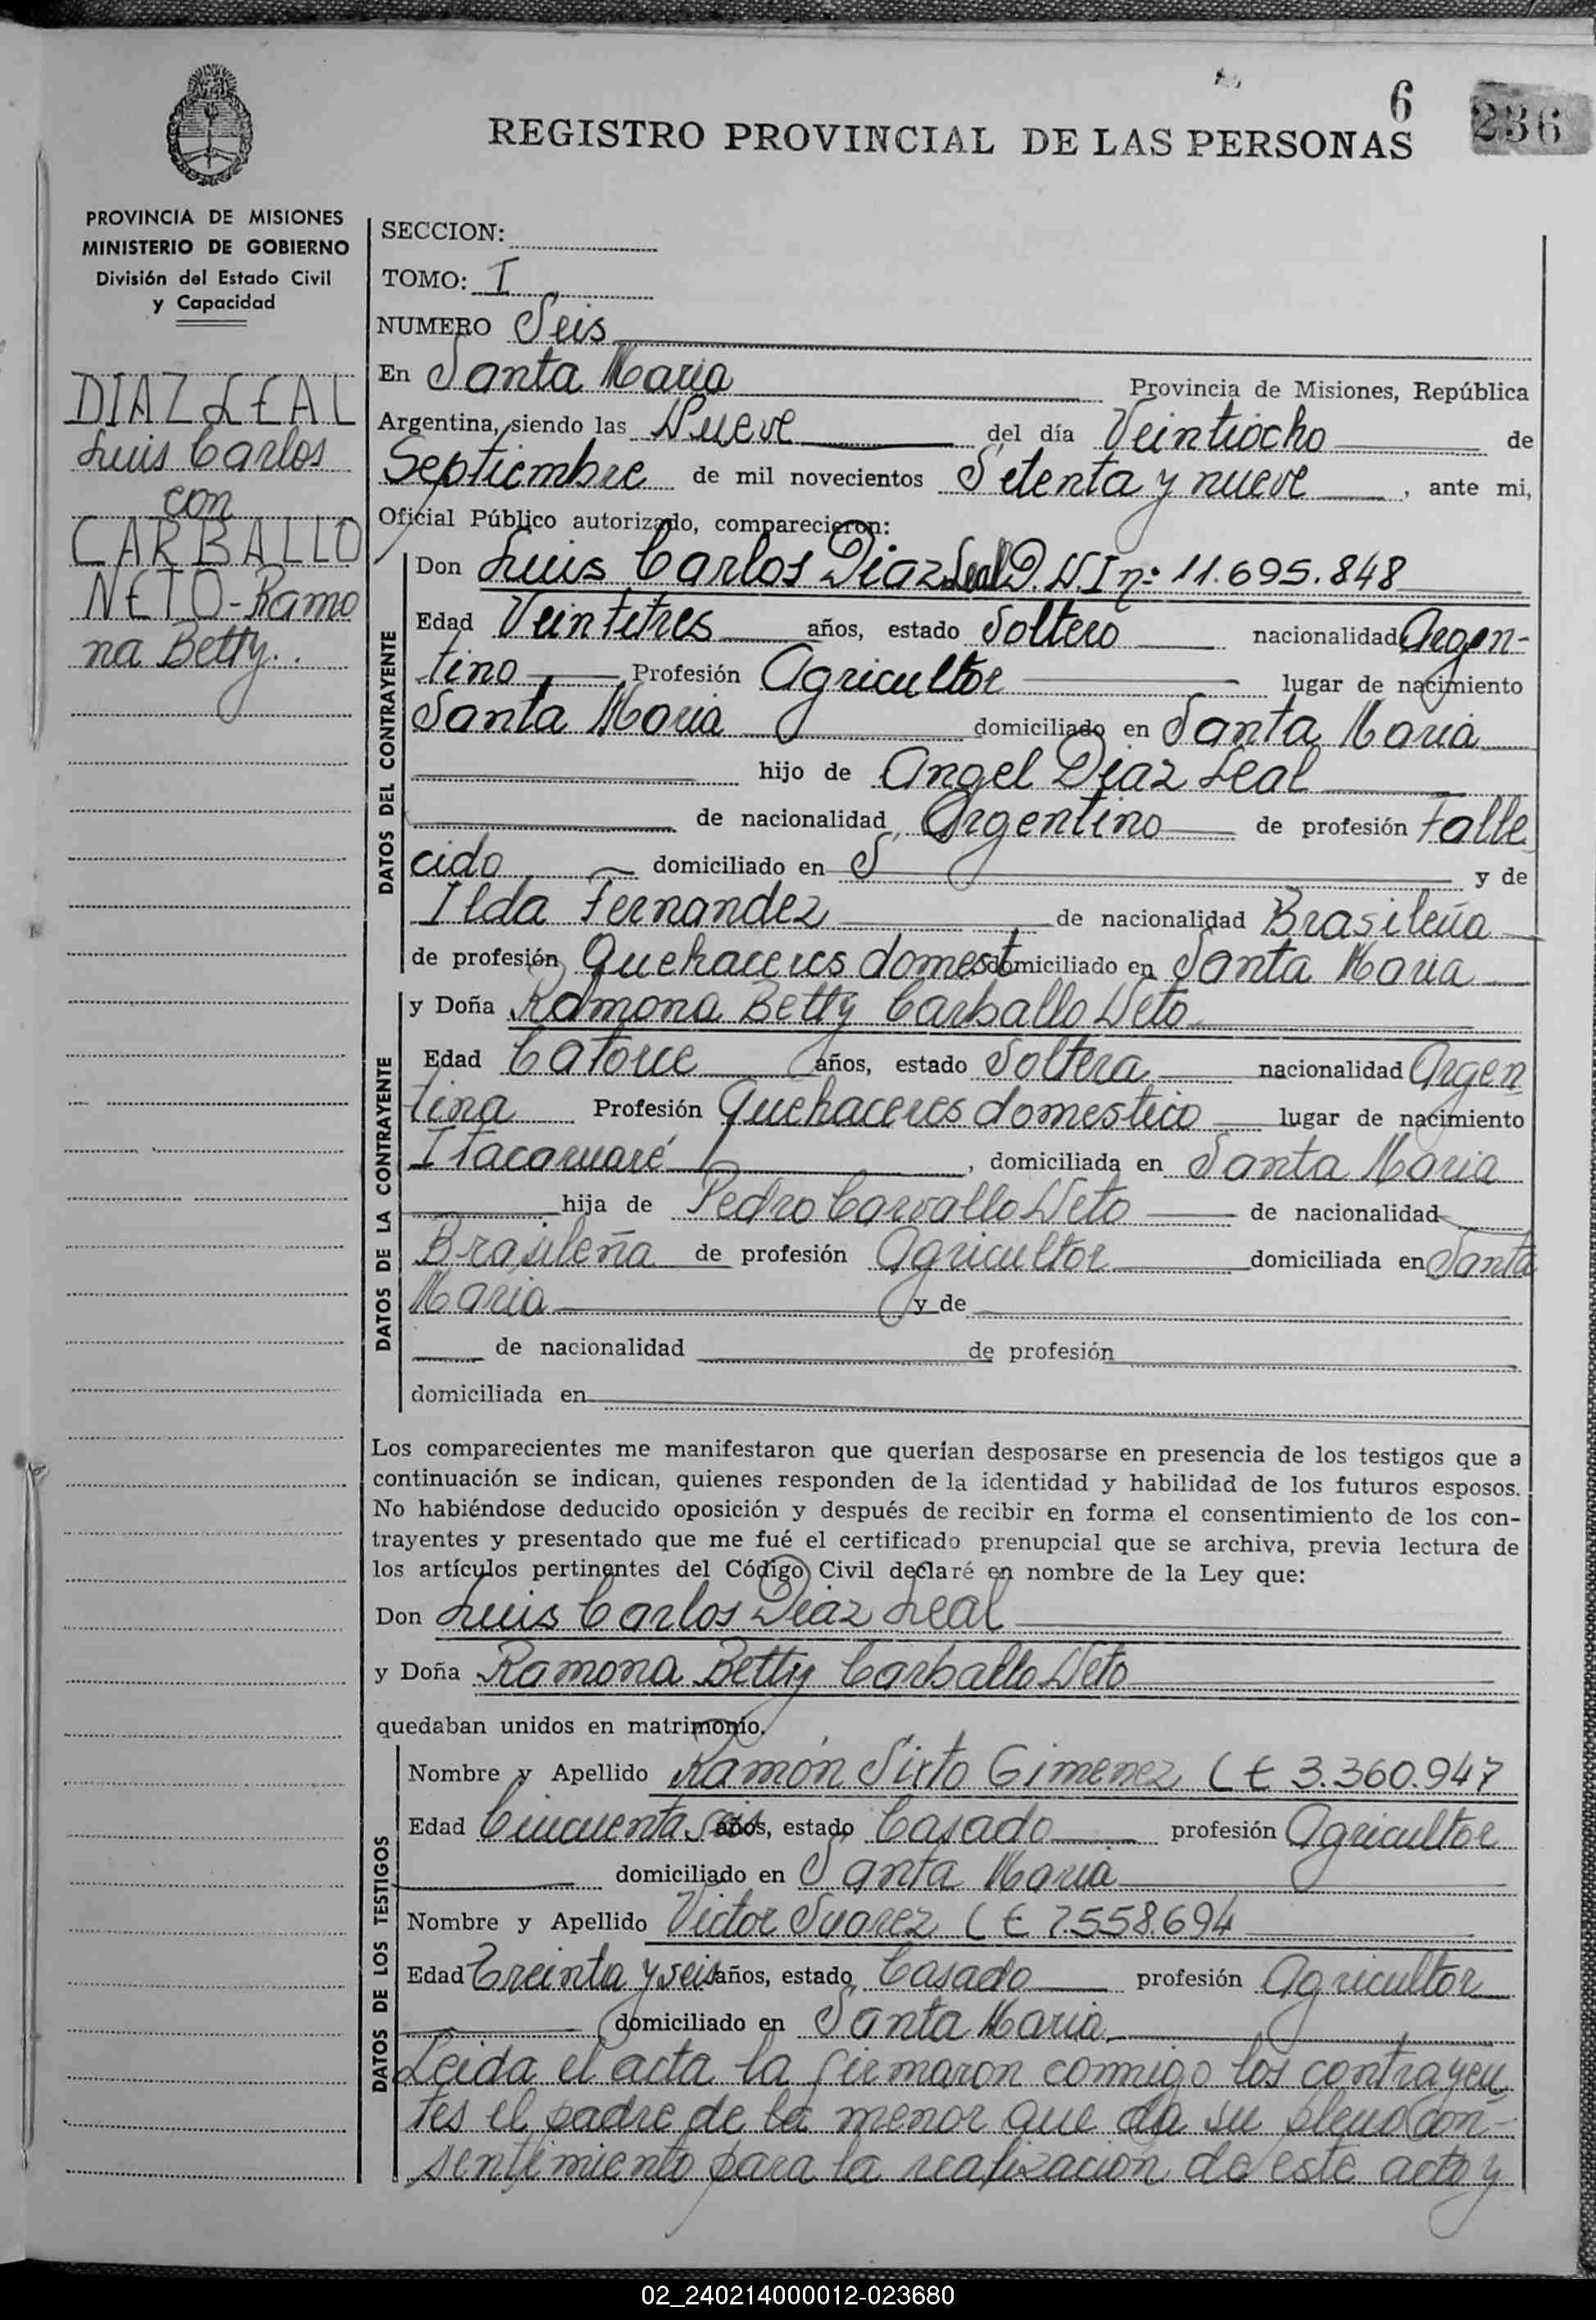 6
236
REGISTRO PROVINCIAL DE LAS PERSONAS
PROVINCIA DE MISIONES
MINISTERIO DE GOBIERNO
División del Estado Civil
y Capacidad
DIAZ LEAL
Luis Carlos
con
CARBALLO
NETO-Ramo
na Betty..
SECCION:
TOMO: I
NUMERO Seis
En Santa Maria Provincia de Misiones, República
Argentina, siendo las Nueve del día Veintiocho de
Septiembre de mil novecientos Setenta y nueve, ante mi,
Oficial Público autorizado, comparecieron:
DATOS DEL CONTRAYENTE
Don Luis Carlos Diaz Leal D.N.I nº 11.695.848
Edad Veintitres años, estado Soltero nacionalidad Argen-
tino Profesión Agricultor lugar de nacimiento
Santa Maria domiciliado en Santa Maria
hijo de Angel Diaz Leal
de nacionalidad Argentino de profesión Falle
cido domiciliado en y de
Ilda Fernandez de nacionalidad Brasileña
de profesión Quehaceres domest domiciliado en Santa Maria
DATOS DE LA CONTRAYENTE
y Doña Ramona Betty Carballo Neto
Edad Catorce años, estado Soltera nacionalidad Argen
tina Profesión Quehaceres domestico lugar de nacimiento
Itacaruaré, domiciliada en Santa Maria
hija de Pedro Carvallo Neto de nacionalidad
Brasileña de profesión Agricultor domiciliada en Santa
Maria y de
de nacionalidad de profesión
domiciliada en
Los comparecientes me manifestaron que querían desposarse en presencia de los testigos que a
continuación se indican, quienes responden de la identidad y habilidad de los futuros esposos.
No habiéndose deducido oposición y después de recibir en forma el consentimiento de los con-
trayentes y presentado que me fué el certificado prenupcial que se archiva, previa lectura de
los artículos pertinentes del Código Civil declaré en nombre de la Ley que:
Don Luis Carlos Diaz Leal
y Doña Ramona Betty Carballo Neto
quedaban unidos en matrimonio.
DATOS DE LOS TESTIGOS
Nombre y Apellido Ramón Sixto Gimenez L E 3.360.947
Edad Cincuenta seis años, estado Casado profesión Agricultor
domiciliado en Santa Maria
Nombre y Apellido Victor Suarez L E 7.558.694
Edad Treinta y seis años, estado Casado profesión Agricultor
domiciliado en Santa Maria.
Leida el acta la firmaron conmigo los contrayen
tes el padre de la menor que da su pleno con-
sentimiento para la realizacion de este acto y
02_240214000012-023680